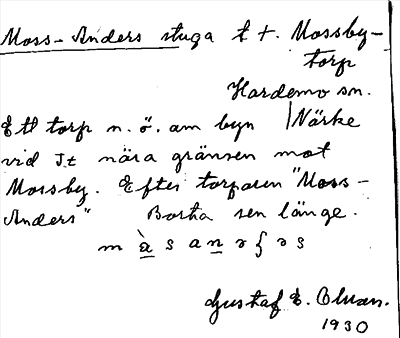 Moss-Anders stuga t t. Mossby-
torp
Hardemo sn.
Ett torp n. ö. om byn | Närke
vid J.t nära gränsen mot
Mossby. Efter torparen "Moss-
Anders" Borta sen länge.
m à s a n ə ʃ ə s
Gustaf E. Olsson.
1930